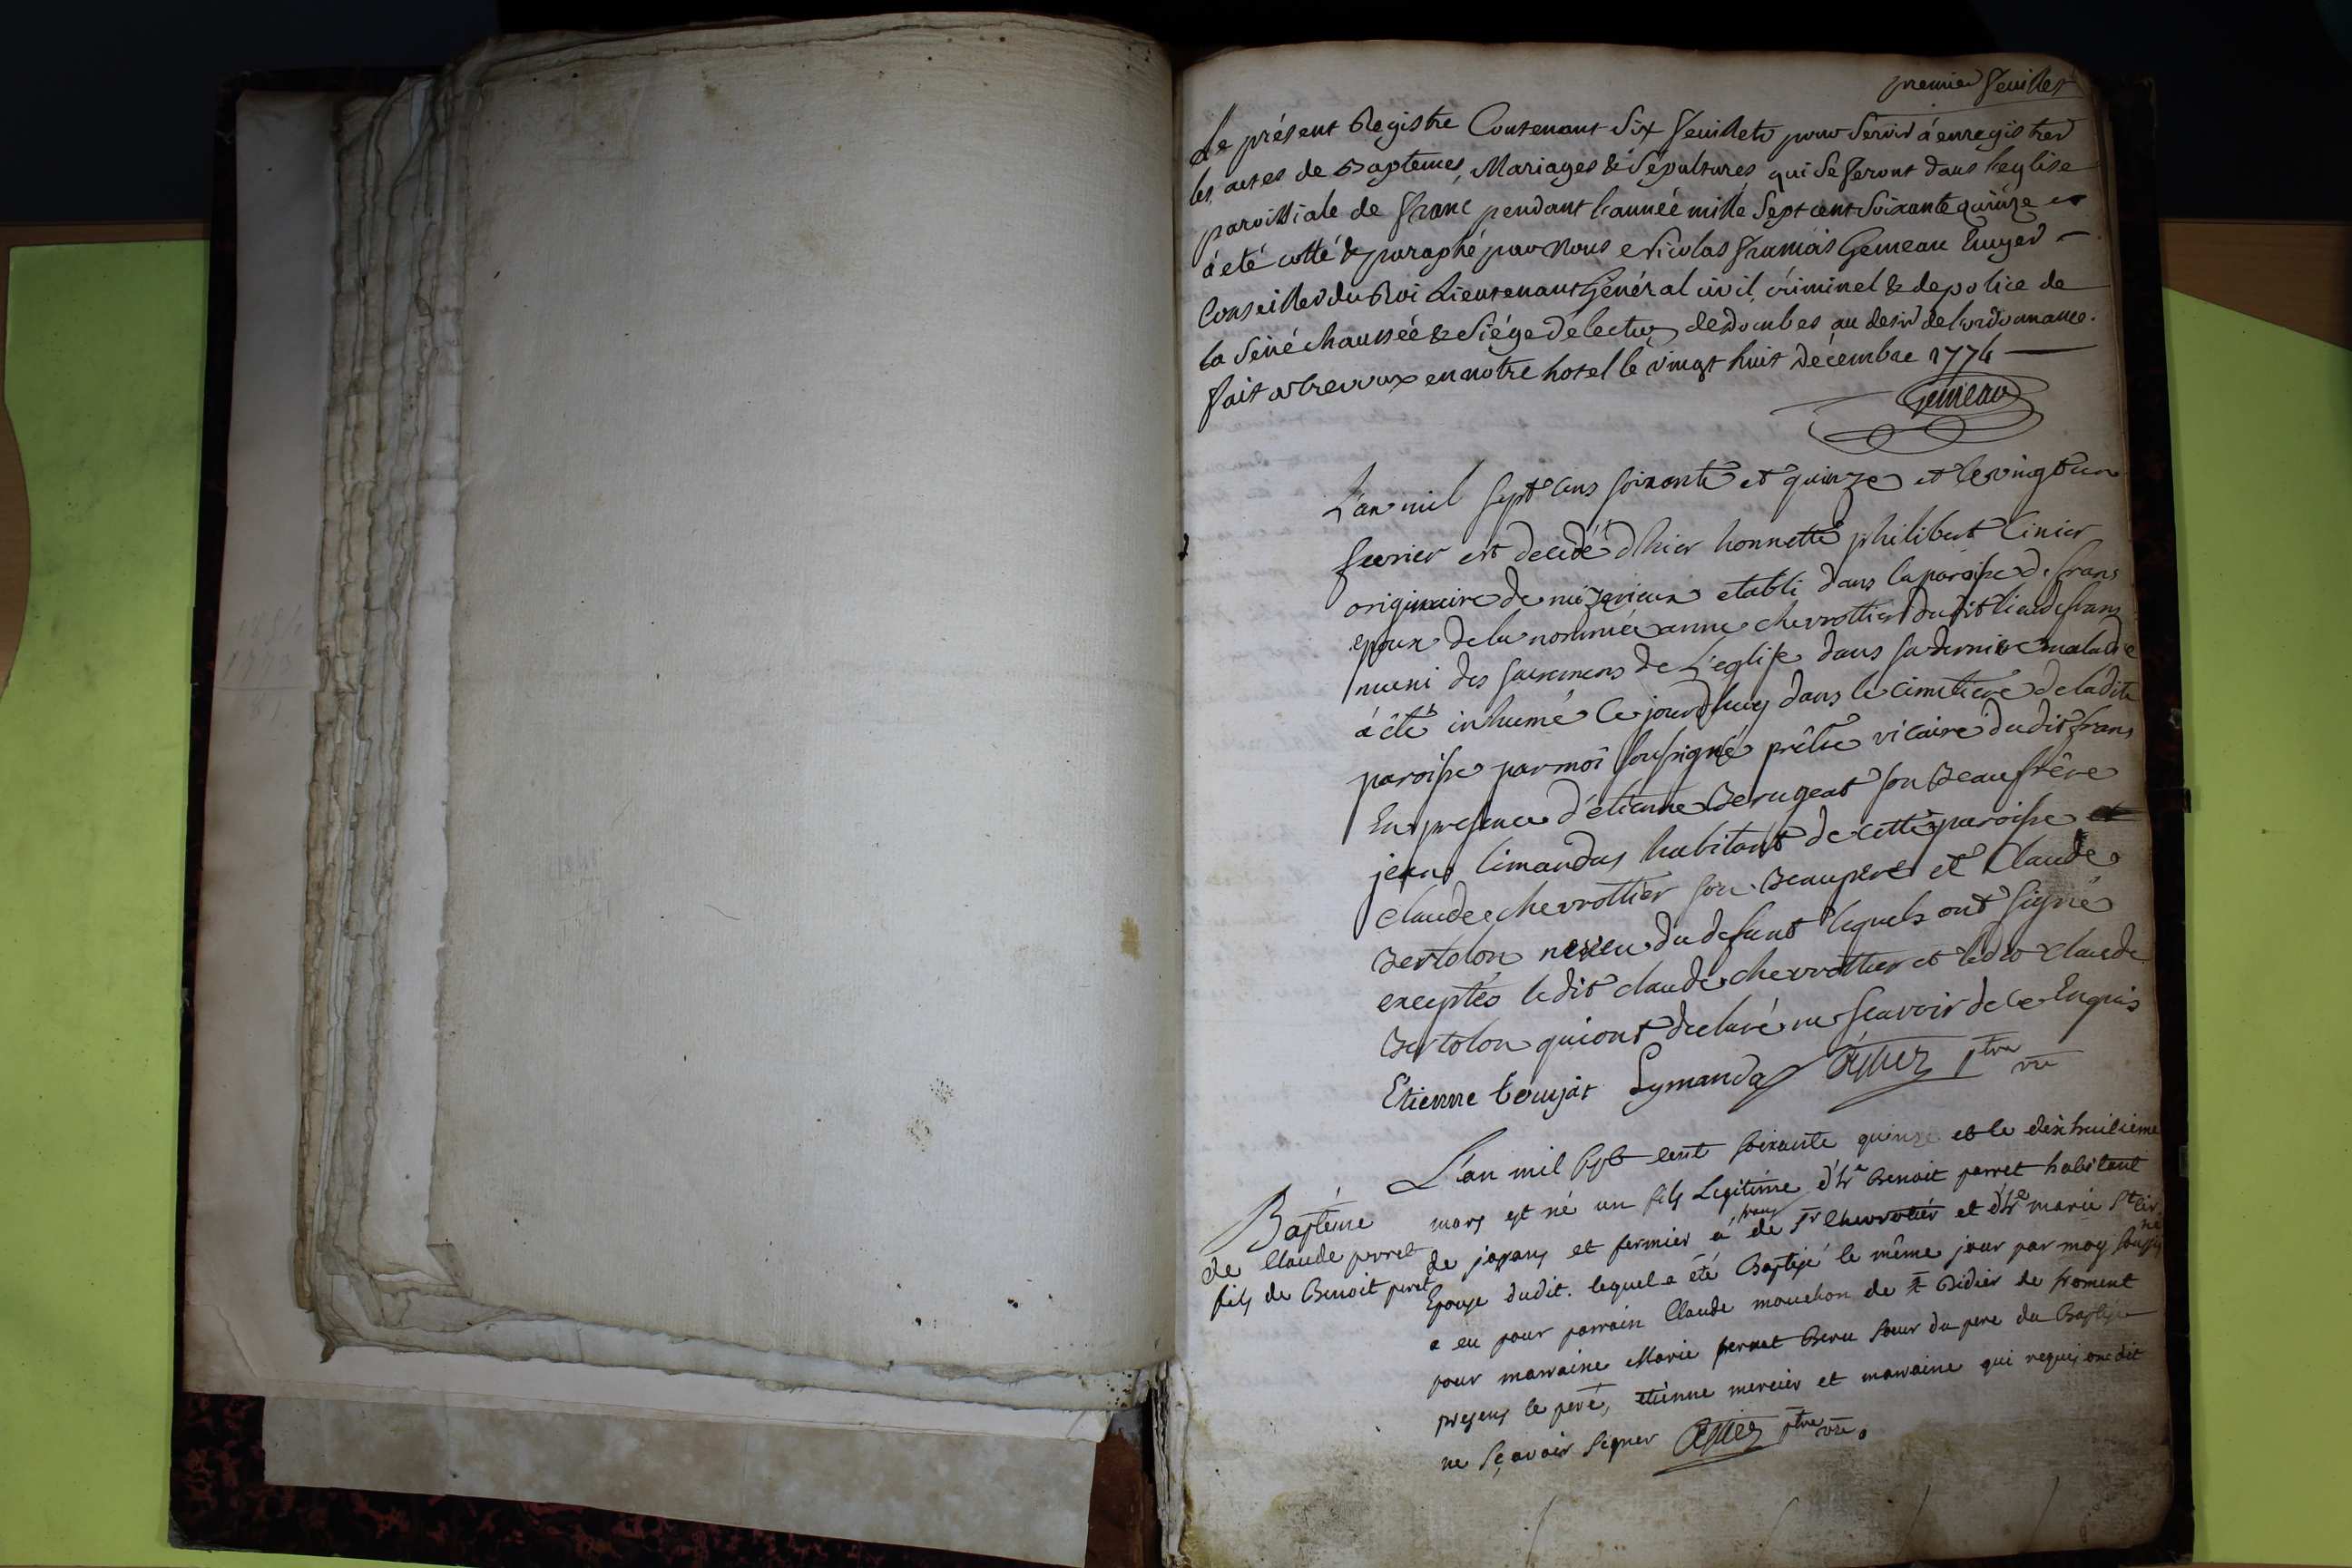 premier feuillet
Le présent Registre Contenant Six feuillets pour Servir à enregistrer
les actes de Baptemes, Mariages & Sépultures qui se feront dans l'eglise
paroissiale de franc pendant l'année mille Sept cent Soixante quinze
à eté cotté & paraphé par Nous Nicolas francois Gemeau Ecuyer
Conseiller du Roi Lieutenant Général civil, criminel & de police de
la Sénéchaussée & Siége de dombes au desir de l'ordonnance.
fait à trevoux en notre hotel le vingt huit décembre 1774
Gemeau
L'an mil sept cens soixante et quinze et le vingt un
fevrier est decedé d'hier honnette philibert Cinier
originaire de mizerieux etabli dans la paroisse de frans
epoux de la nommée anne chevrottier dudit lieu de frans
muni des sacremens de L'eglise dans sa derniere maladie
à été inhumé Ce jourd'huy dans le cimetiere de la dite
paroisse par moi soussigné prêtre vicaire dudit frans
En presence d'etienne Berugeat son Beaufrêre
jean limandas habitant de cette paroisse
claude chevrottier son Beaupere et Claude
Bertolon neveu du defunt lequels ont signé
exceptés ledit claude chevrottier et ledit Claude
Bertolon qui ont declaré ne scavoir de ce Enquis
Etienne berujat Lymandas ptre vre
L'an mil sept cent soixante quinze et le dixhuitieme
Baptême mars est né un fils Legitime d'hr Benoit perret habitant
de Claude perret de jassans et fermier à frans de Sr Chevrotier et d'hte marie
fils de Benoit peret Epouse dudit. lequel a été Baptisé le même jour par moy soussigné
a eu pour parrain Claude mouchon de St Didier de froment
pour marraine Marie perret soeur du pere du Baptisé
presens le peré, etienne mercier et marraine qui requis ont dit
ne sçavoir signer ptre vre.